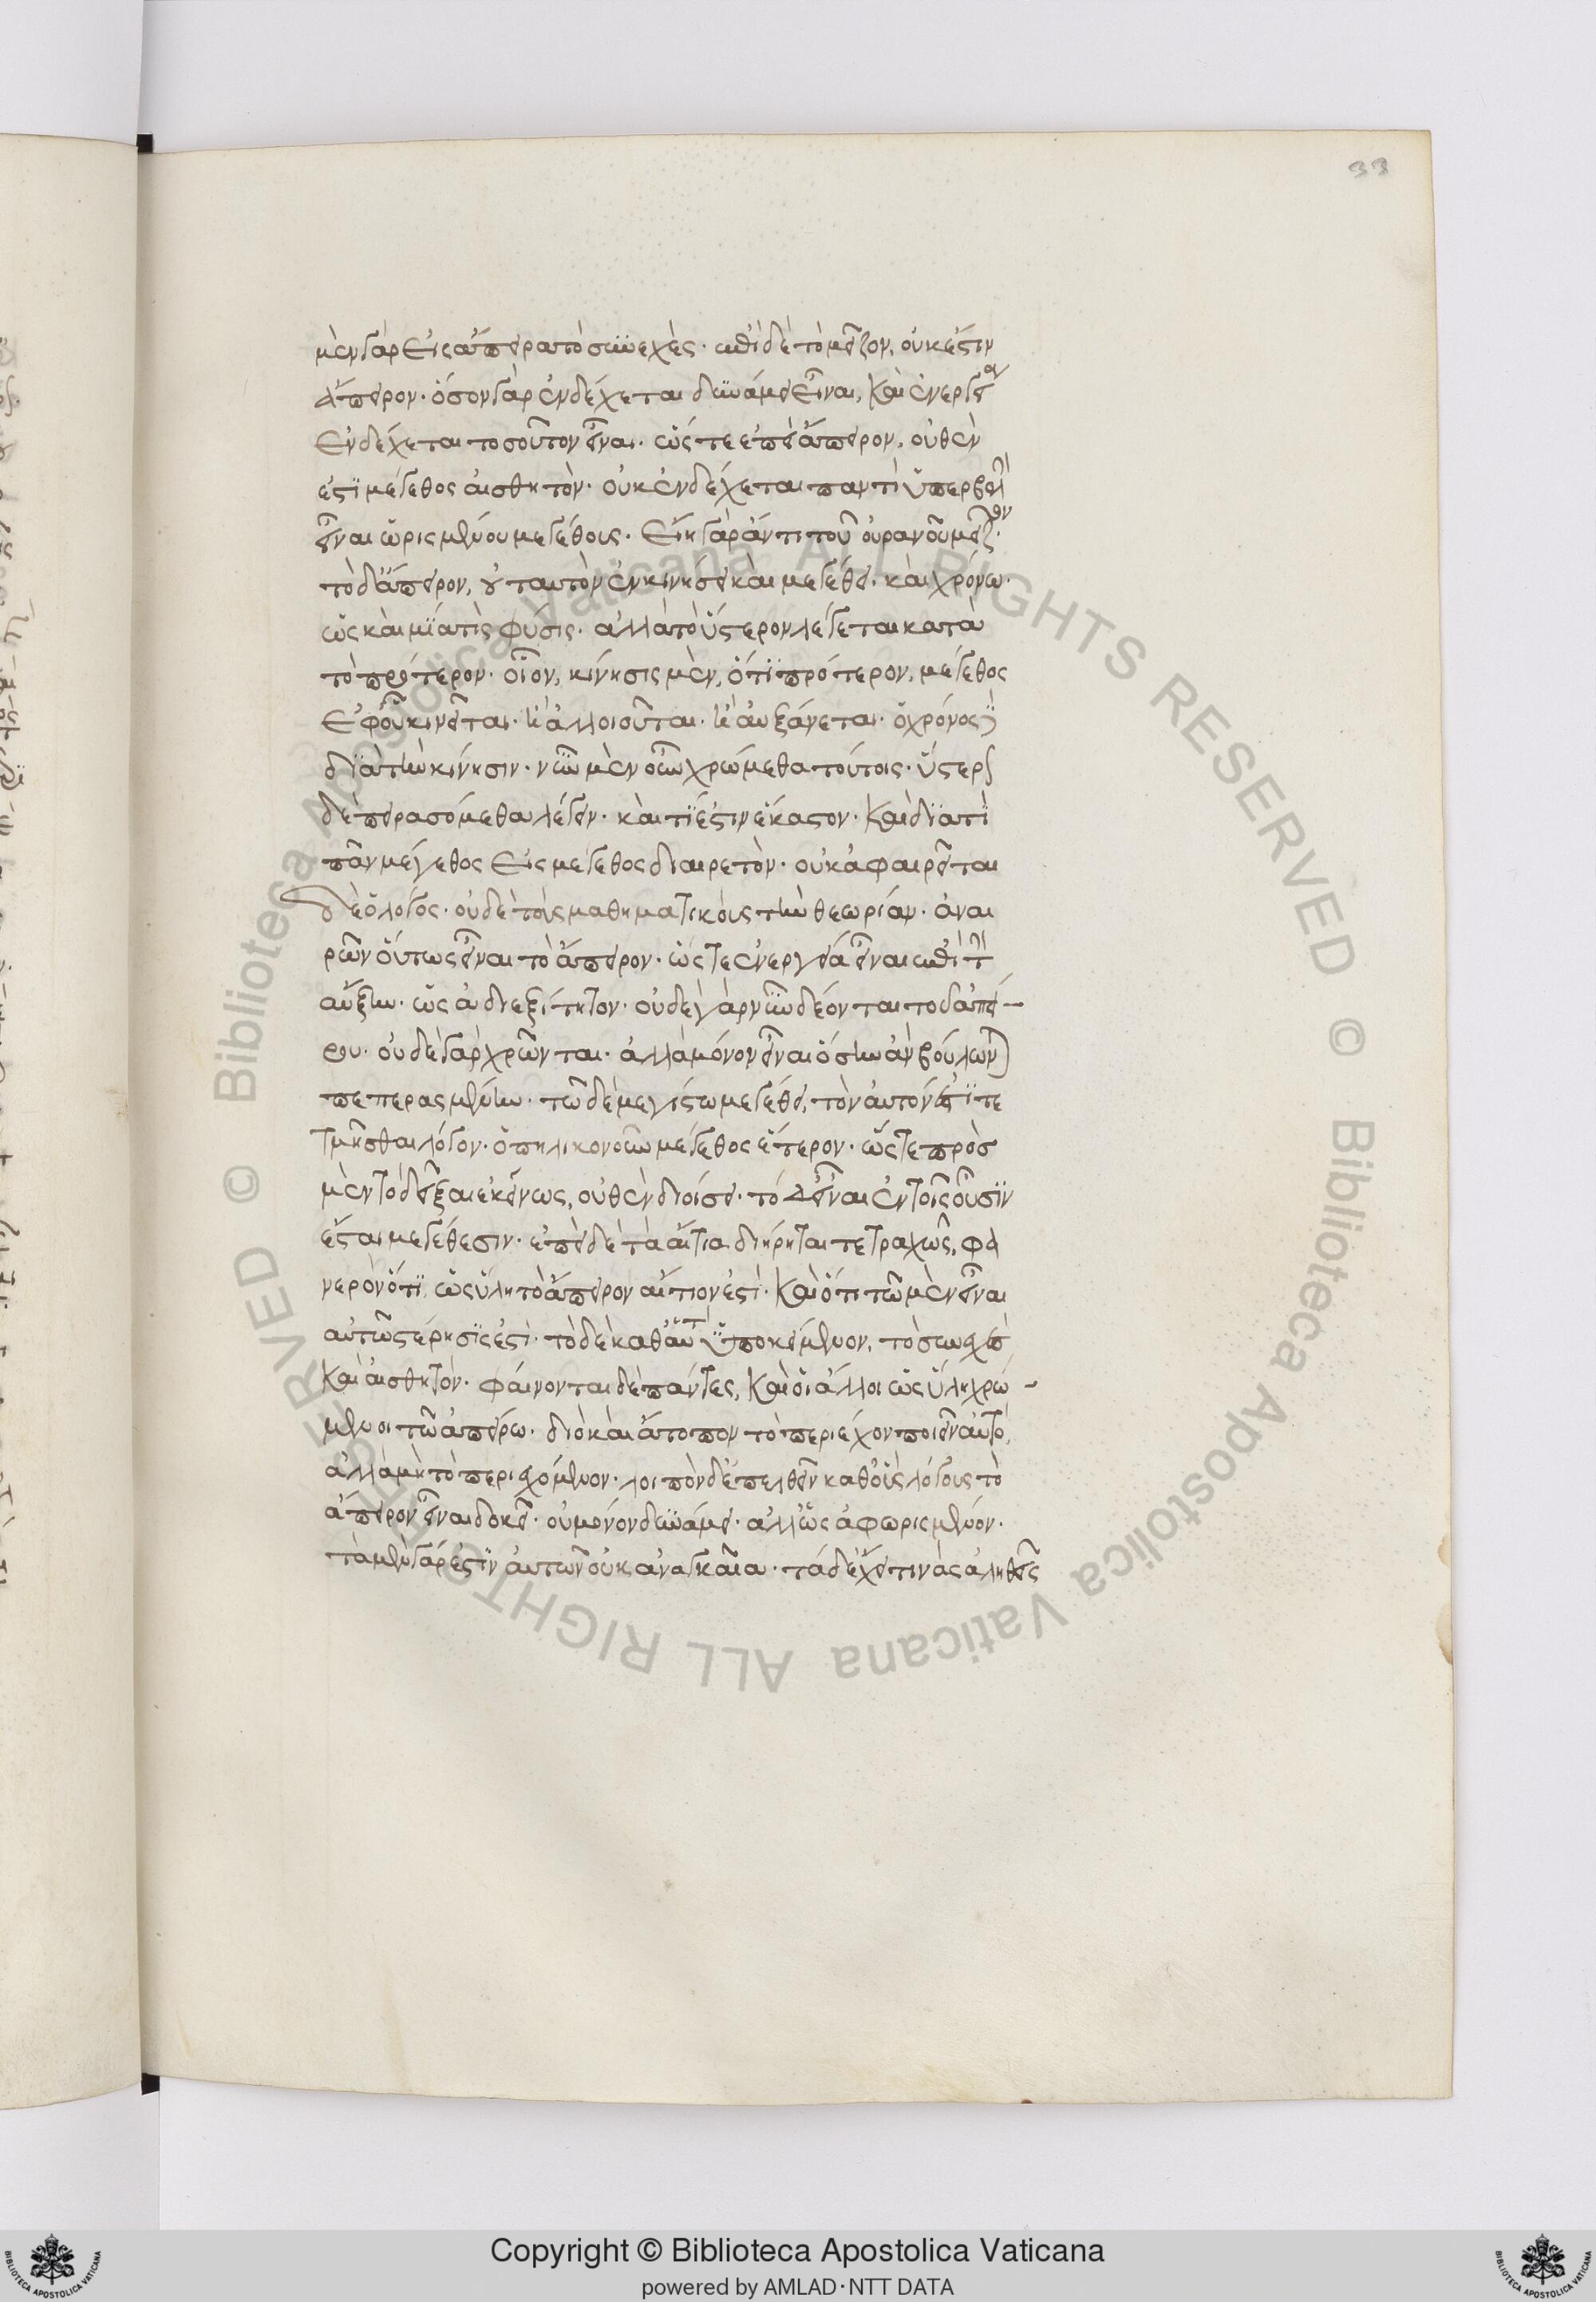 33
μὲν γὰρ εἰς ἄπειρα τὸ συνεχὲς· ἐπὶ δὲ τὸ μεῖζον, οὐκ ἔστιν
ἄπειρον· ὅσον γὰρ ἐνδέχεται δυνάμει εἶναι, καὶ ἐνεργείᾳ
ἐνδέχεται τοσοῦτον εἶναι· ὥστε ἐπεὶ ἄπειρον, οὐθὲν
ἐστὶ μέγεθος αἰσθητὸν· οὐκ ἐνδέχεται παντὸς ὑπερβολὴ
εἶναι ὡρισμένου μεγέθους· εἴη γὰρ ἄν τι τοῦ οὐρανοῦ μεῖζον·
τὸ δ' ἄπειρον, οὐ ταυτὸν ἐν κινήσει καὶ μεγέθει· καὶ χρόνῳ·
ὡς καὶ μία τὶς φύσις· ἀλλὰ τὸ ὕστερον λέγεται κατὰ
τὸ πρότερον· οἷον, κίνησις μὲν, ὅτι πρότερον, μέγεθος
ἐφ' οὗ κινεῖται· ἢ ἀλλοιοῦται· ἢ αὐξάνεται· ὁ χρόνος δὲ
διὰ τὴν κίνησιν· νῦν μὲν οὖν χρώμεθα τούτοις· ὕστερον
δὲ πειρασόμεθα λέγειν· καὶ τί ἐστιν ἕκαστον· καὶ διατί
πᾶν μέγεθος εἰς μέγεθος διαιρετὸν· οὐκ ἀφαιρεῖται
δὲ ὁ λόγος· οὐδὲ τοὺς μαθηματικοὺς τὴν θεωρίαν· ἀναι
ρῶν οὕτως εἶναι τὸ ἄπειρον· ὥστε ἐνεργείᾳ εἶναι ἐπὶ τὴν
αὔξην· ὡς ἀδιεξίτητον· οὐδὲ γὰρ νῦν δέονται τοῦ ἀπεί-
ρου· οὐδὲ γὰρ χρῶνται· ἀλλὰ μόνον εἶναι ὅσην ἂν βούλωνται
πεπερασμένην· τῷ δὲ μεγίστῳ μεγέθει, τὸν αὐτὸν ἐστὶ τε
τμῆσθαι λόγον· ὁπηλικονοῦν μέγεθος ἕτερον· ὥστε πρὸσ
μὲν τὸ δεῖξαι ἐκείνως, οὐθὲν διοίσει· τὸ δ' εἶναι ἐν τοῖς οὖσιν
ἔσται μεγέθεσιν· ἐπεὶ δὲ τὰ αἴτια διήρηται τετραχῶς, φα
νερὸν ὅτι ὡς ὕλη τὸ ἄπειρον αἴτιον ἐστὶ· καὶ ὅτι τῶ μὲν εἶναι
αὐτῶ στέρησις ἐστὶ· τὸ δὲ καθ' αὑτὸ ὑποκείμενον, τὸ συνεχὲς
καὶ αἰσθητόν· φαίνονται δὲ πάντες, καὶ οἱ ἄλλοι ὡς ὕλη χρώ-
μενοι τῶ ἀπείρω· διὸ καὶ ἄτοπον τὸ περιέχον ποιεῖν αὐτό,
ἀλλὰ μὴ τὸ περιεχόμενον· λοιπὸν δ' ἐπελθεῖν καθ' οὓς λόγους τὸ
ἄπειρον εἶναι δοκεῖ· οὐ μόνον δυνάμει· ἀλλ' ὡς ἀφωρισμένον·
τὰ μὲν γὰρ ἐστὶν αὐτῶν οὐκ ἀναγκαῖα· τὰ δ' ἔχει τινὰς ἀληθεῖς
Copyright © Biblioteca Apostolica Vaticana
powered by AMLAD·NTT DATA